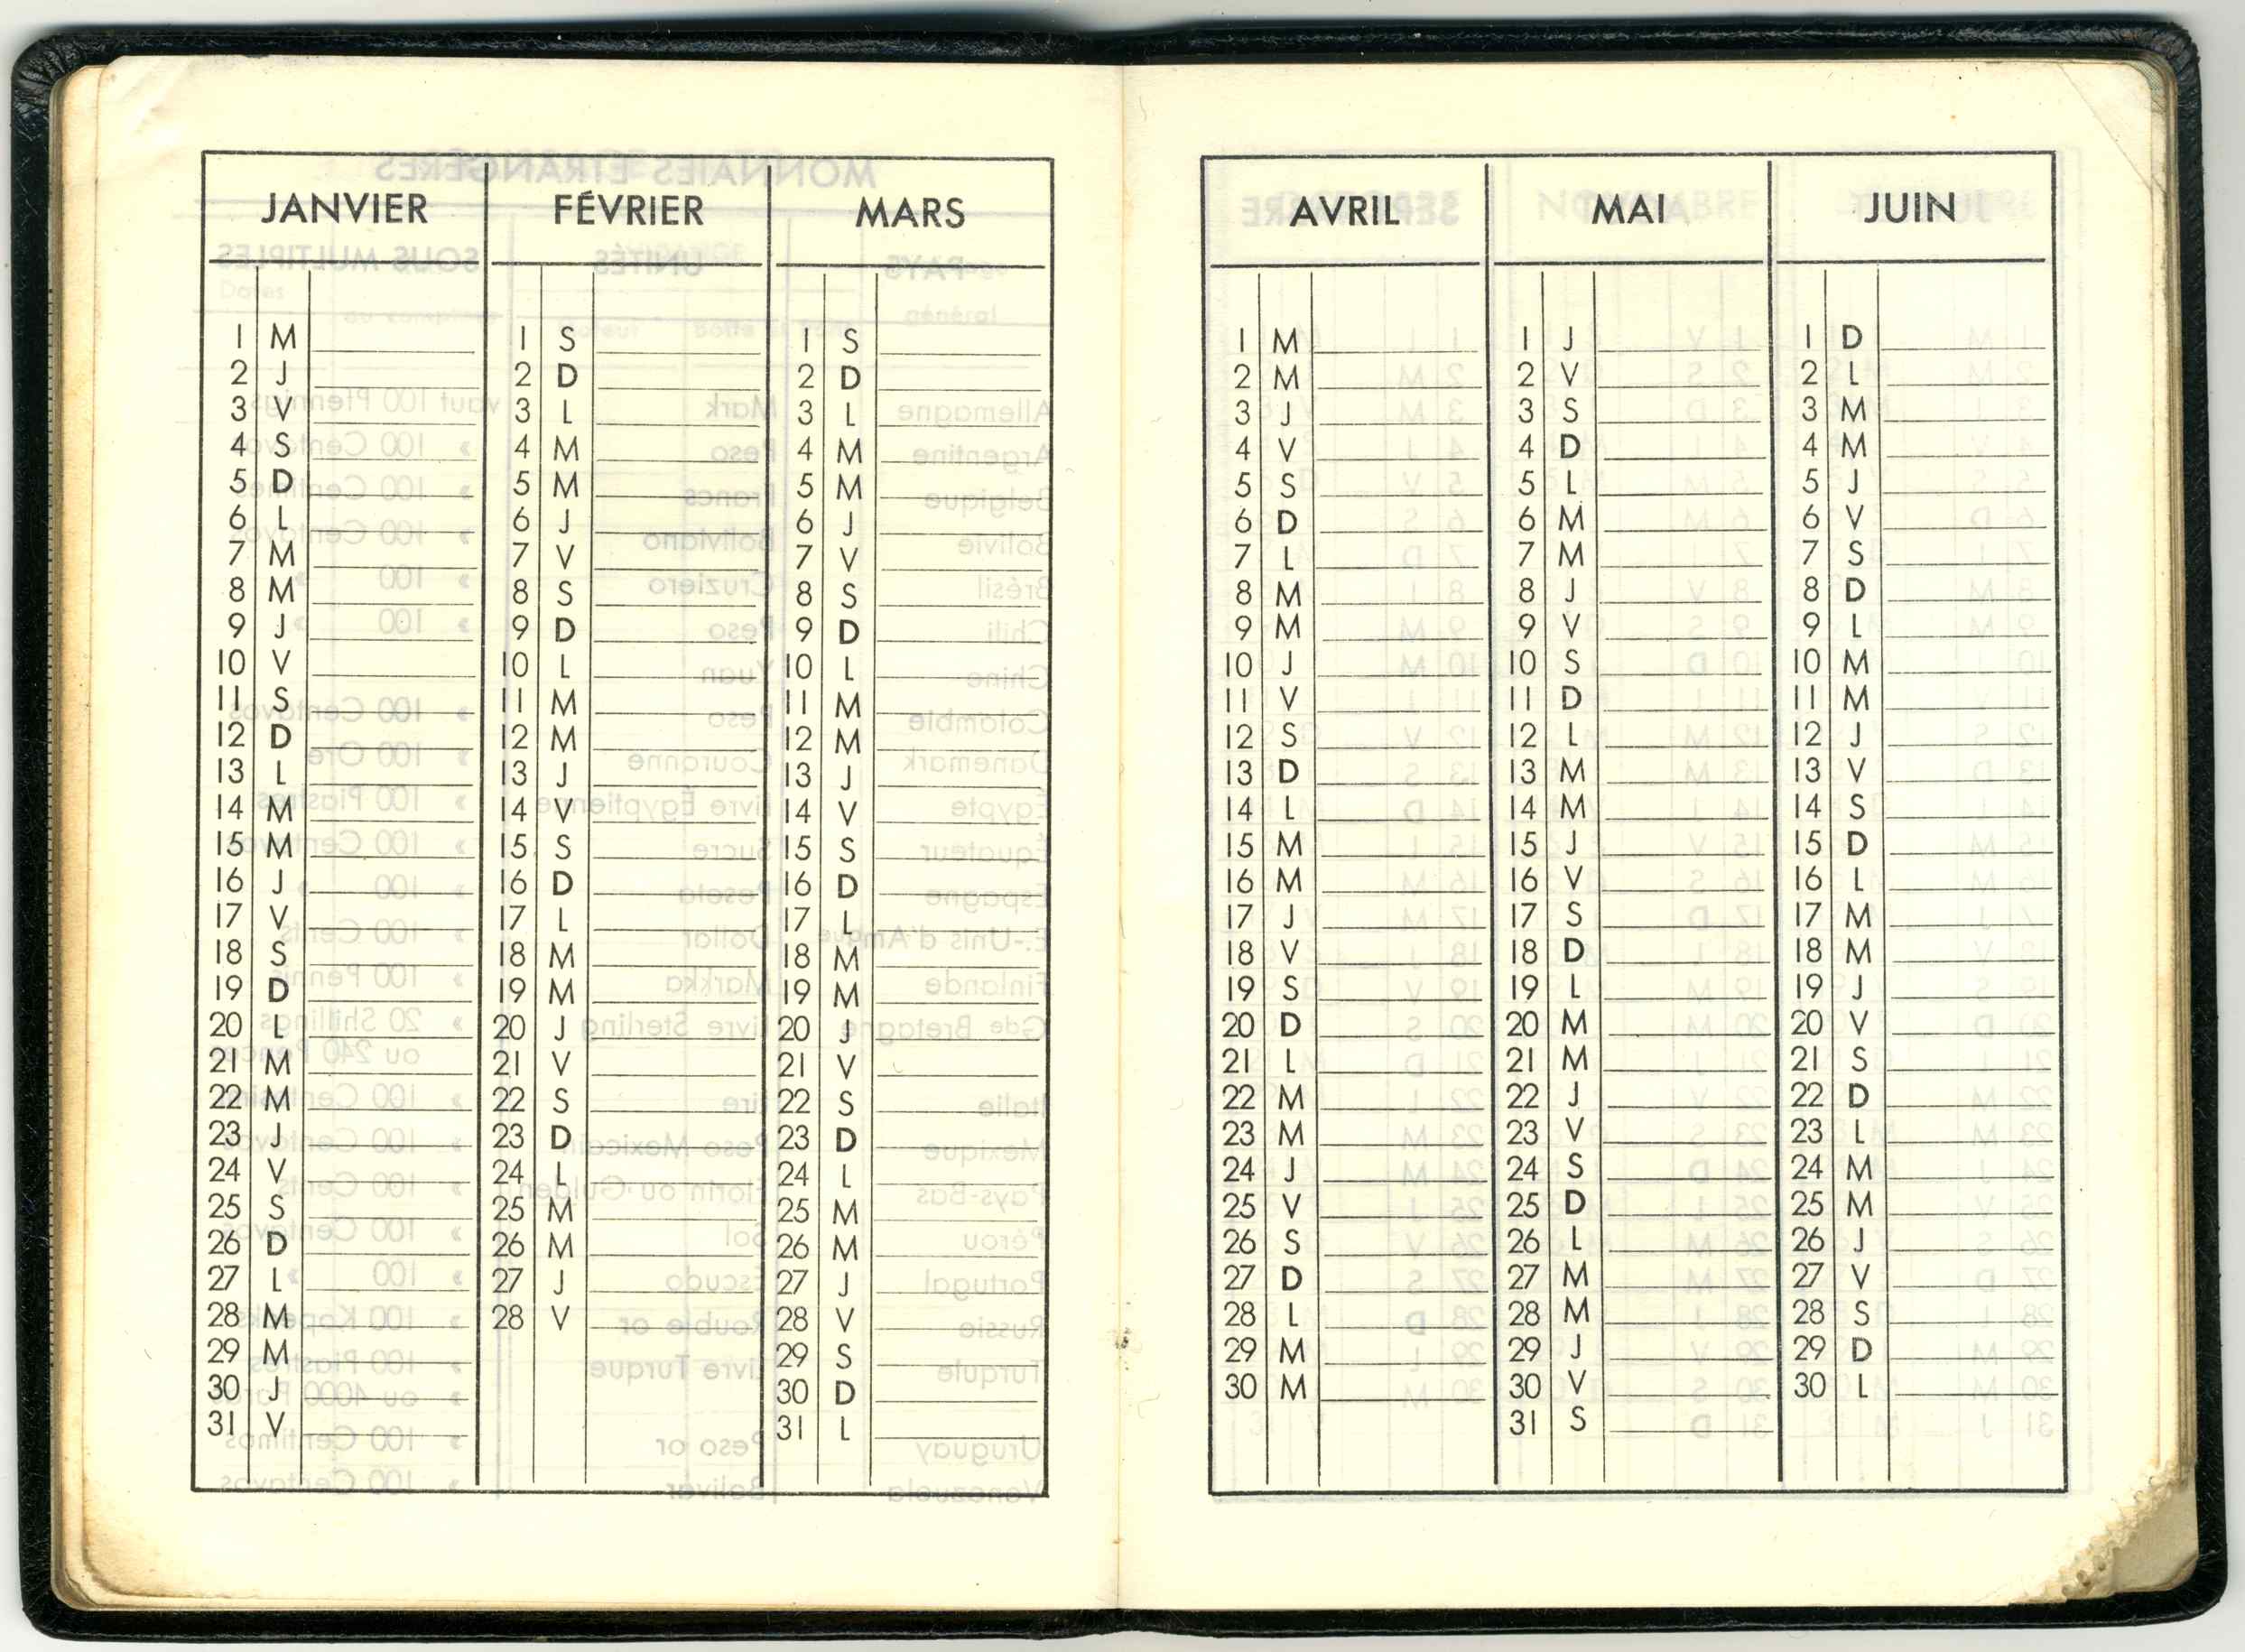 JANVIER FÉVRIER MARS
1 M 1 S 1 S
2 J 2 D 2 D
3 V 3 L 3 L
4 S 4 M 4 M
5 D 5 M 5 M
6 L 6 J 6 J
7 M 7 V 7 V
8 M 8 S 8 S
9 J 9 D 9 D
10 V 10 L 10 L
11 S 11 M 11 M
12 D 12 M 12 M
13 L 13 J 13 J
14 M 14 V 14 V
15 M 15 S 15 S
16 J 16 D 16 D
17 V 17 L 17 L
18 S 18 M 18 M
19 D 19 M 19 M
20 L 20 J 20 J
21 M 21 V 21 V
22 M 22 S 22 S
23 J 23 D 23 D
24 V 24 L 24 L
25 S 25 M 25 M
26 D 26 M 26 M
27 L 27 J 27 J
28 M 28 V 28 V
29 M 29 S
30 J 30 D
31 V 31 L
AVRIL MAI JUIN
1 M 1 J 1 D
2 M 2 V 2 L
3 J 3 S 3 M
4 V 4 D 4 M
5 S 5 L 5 J
6 D 6 M 6 V
7 L 7 M 7 S
8 M 8 J 8 D
9 M 9 V 9 L
10 J 10 S 10 M
11 V 11 D 11 M
12 S 12 L 12 J
13 D 13 M 13 V
14 L 14 M 14 S
15 M 15 J 15 D
16 M 16 V 16 L
17 J 17 S 17 M
18 V 18 D 18 M
19 S 19 L 19 J
20 D 20 M 20 V
21 L 21 M 21 S
22 M 22 J 22 D
23 M 23 V 23 L
24 J 24 S 24 M
25 V 25 D 25 M
26 S 26 L 26 J
27 D 27 M 27 V
28 L 28 M 28 S
29 M 29 J 29 D
30 M 30 V 30 L
31 S